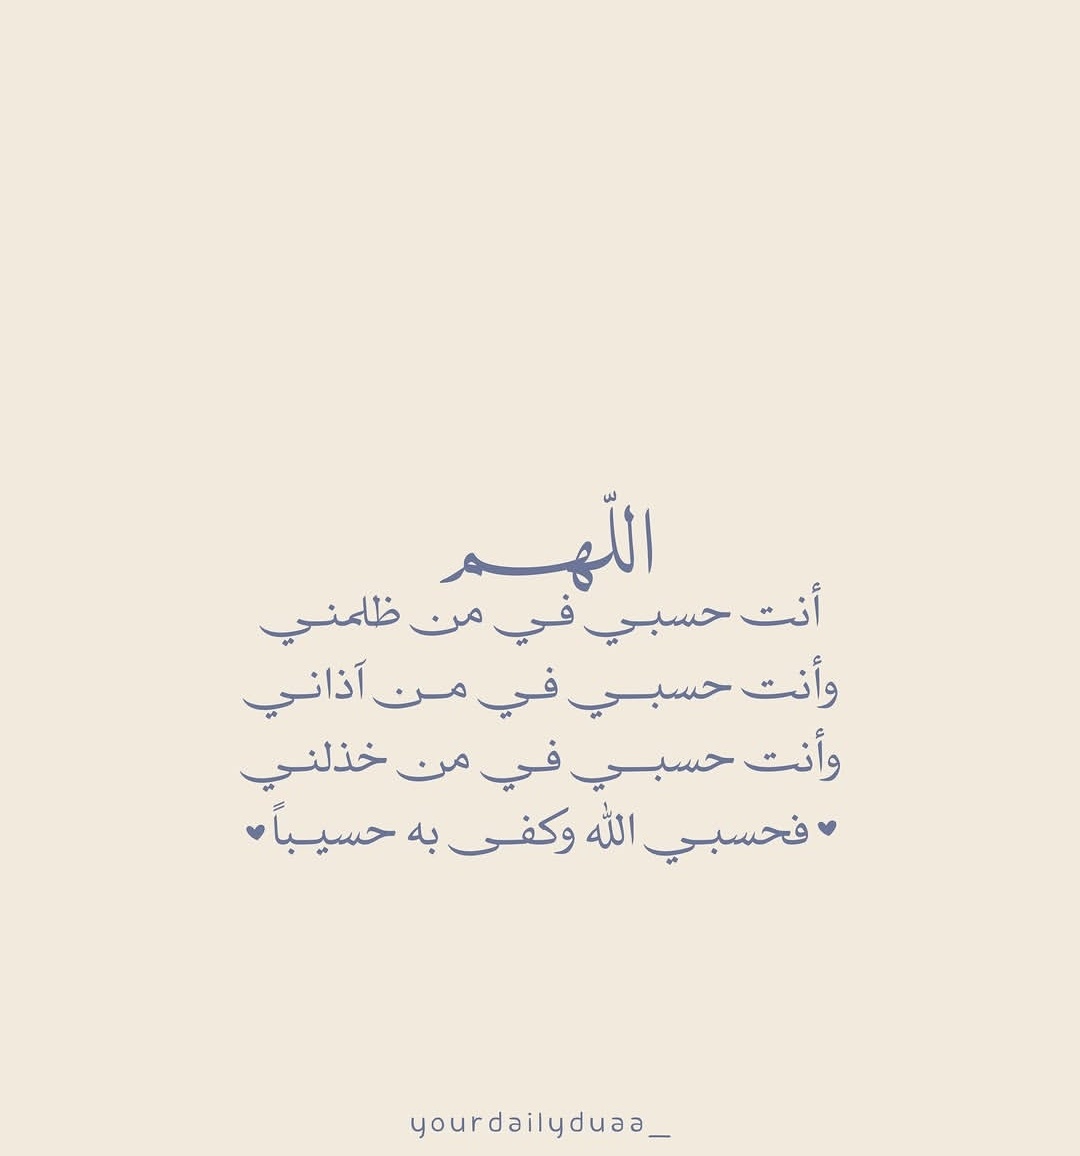 اللّهـــم
أنت حسبـي فـي من ظلمنـي
وأنت حسبــي فـي مـن آذانـي
وأنت حسبــي فـي من خذلنـي
♥ فحسبـي الله وكفـى به حسيـباً ♥
yourdailyduaa_